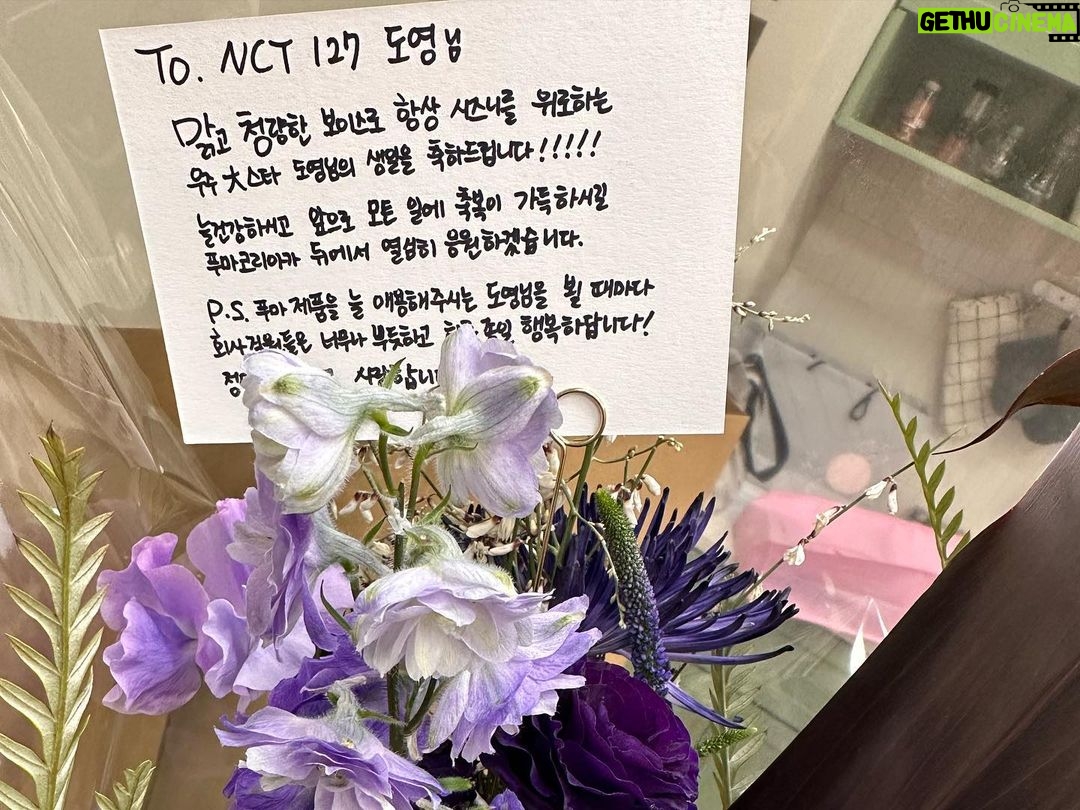 GETHUCINEMA
To. NCT 127 도영님
맑고 청량한 보이스로 항상 시즈니를 위로하는
우주 大스타 도영님의 생일을 축하드립니다!!!!!
늘 건강하시고 앞으로 모든 일에 축복이 가득하시길
푸마코리아가 뒤에서 열심히 응원하겠습니다.
P.S. 푸마 제품을 늘 애용해주시는 도영님을 뵐 때마다
회사 직원들은 너무나 부듯하고 종일 행복하답니다!